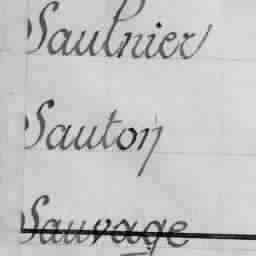 Saulnier
Sauton
Sauvage